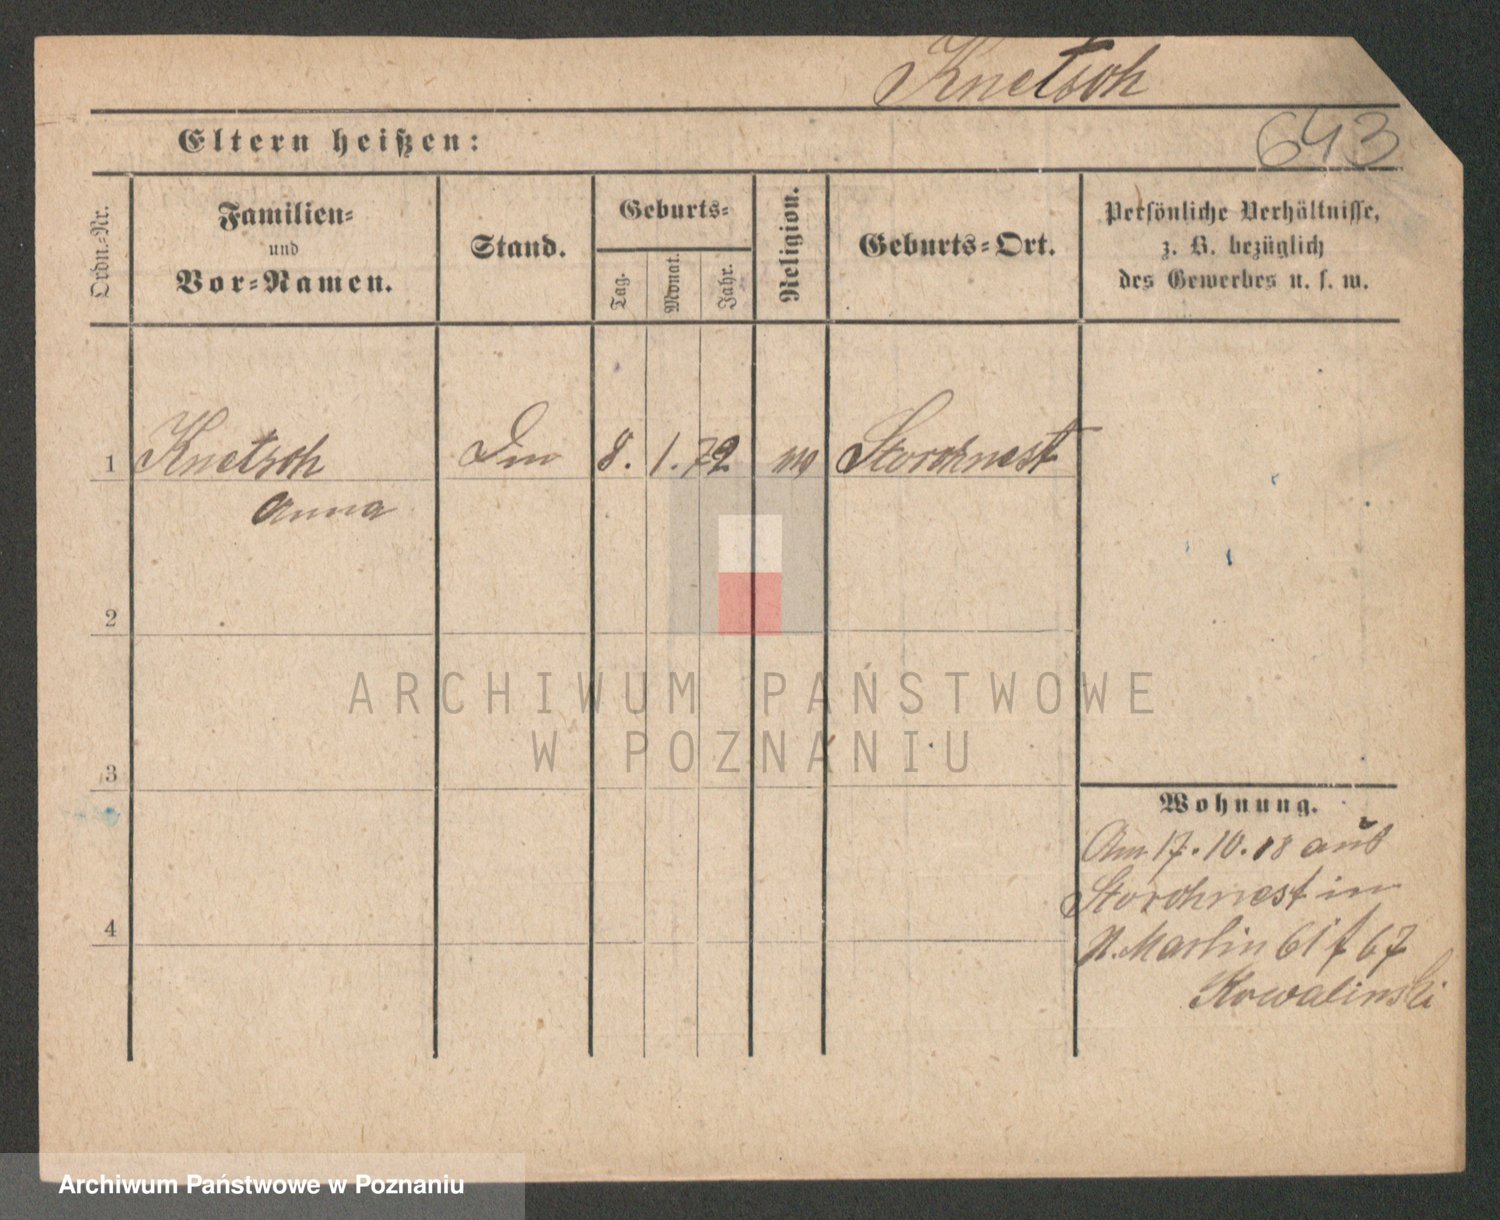 Knetsch
643
Eltern heißen:
Ordn.-Nr.
Familien-
und
Vor-Namen.
Stand.
Geburts-
Tag.
Monat.
Jahr.
Religion.
Geburts-Ort.
Persönliche Verhältnisse,
z. B. bezüglich
des Gewerbes u. s. w.
1 Knetsch 8. 1. 72 Storchnest
Anna
2
ARCHIWUM PAŃSTWOWE
W POZNANIU
3
Wohnung.
Am 17. 10. 18 aus
Storchnest in
Martin 67
Kowalinski
4
Archiwum Państwowe w Poznaniu